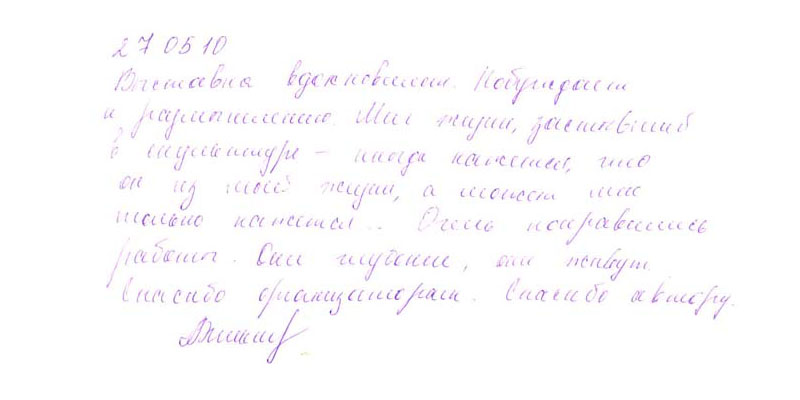 27 05 10
Выставка вдохновила. Побуждает
к размышлению. Миг жизни, застывший
в скульптуре – иногда кажется, что
он из моей жизни, а может мне
только кажется... Очень понравились
работы. Они глубокие, они живут.
Спасибо организаторам. Спасибо автору.